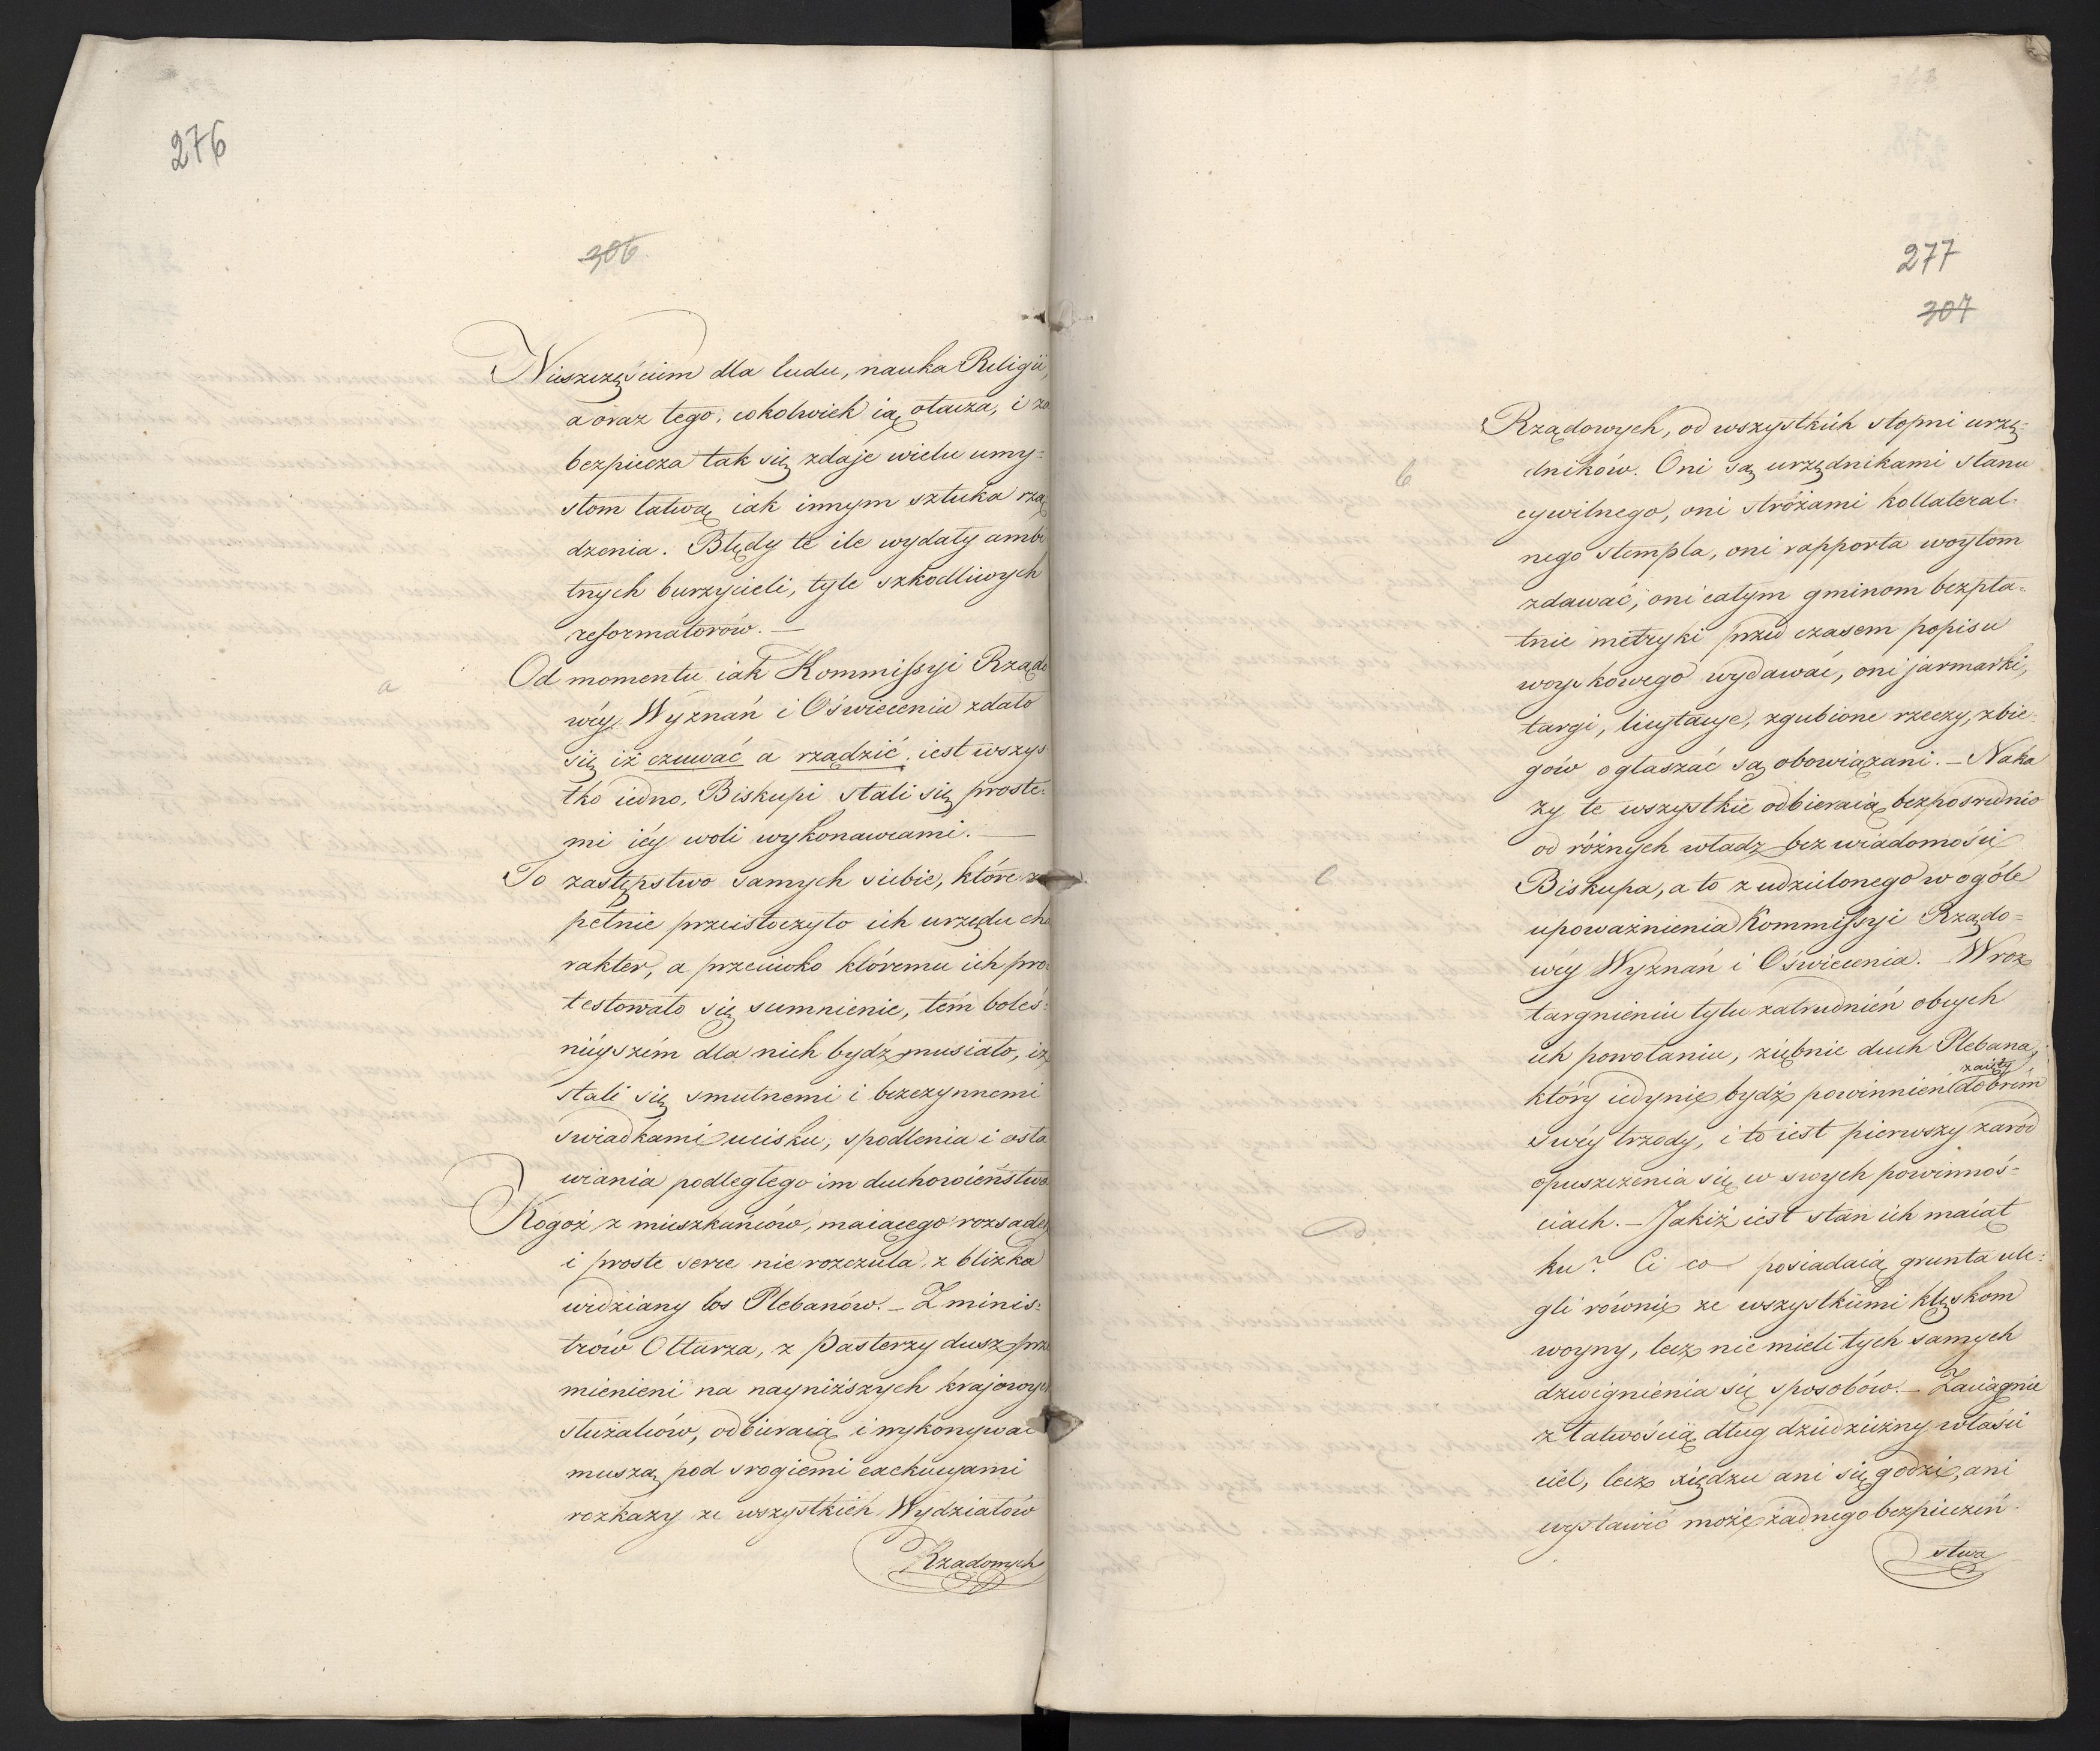 276
306
Nieszczęściem dla ludu, nauka Religii,
a oraz tego, cokolwiek ią otacza, i za
bezpiecza tak się zdaje wielu umy-
słom łatwą iak innym sztuka rzą
dzenia. Błędy te ile wydały ambi
tnych burzycieli, tyle szkodliwych
reformatorów. —
a
Od momentu iak Kommissyi Rządo
wéy Wyznań i Oświecenia zdało
się iż czuwać a rządzić iest wszys
tko iedno, Biskupi stali się proste-
mi iéy woli wykonawcami. —
To zastępstwo samych siebie, które zu
pełnie przeistoczyło ich urzędu cha
rakter, a przeciwko któremu ich pro-
testowało się sumnienie, tém boleś-
nieyszém dla nich bydź musiało, iż
stali się smutnemi i bezczynnemi
swiadkami ucisku, spodlenia i osła
wiania podległego im duchowieństwa
Kogoż z mieszkańców, maiącego rozsądek
i proste serce nie rozczula z blizka
widziany los Plebanów. — Z minis-
trów Ołtarza, z Pasterzy dusz prze
mienieni na nayniższych krajowych
służalców, odbieraią i wykonywać
muszą pod srogiemi exekucyami
rozkazy ze wszystkich Wydziałów
Rządowych
277
307
Rządowych, od wszystkich stopni urzę-
b
dników. Oni są urzędnikami stanu
cywilnego, oni stróżami kollateral-
nego stempla, oni rapporta woytom
zdawać, oni całym gminom bezpła-
tnie metryki przed czasem popisu
woyskowego wydawać, oni jarmarki,
targi, licytacye, zgubione rzeczy, zbie-
gów ogłaszać są obowiązani. — Naka
zy te wszystkie odbieraią bezposrednio
od różnych władz bez wiadomości
c
Biskupa, a to z udzielonego w ogóle
upoważnienia Kommissyi Rządo-
wéy Wyznań i Oświecenia. — W roz
targnieniu tylu zatrudnień obcych
ich powołaniu, ziębnie duch Plebana,
zaięty
który iedynie bydź powinnien dobrém
swéy trzody, i to iest pierwszy zaród
opuszczenia się w swych powinnoś-
d.
ciach. — Jakiż iest stan ich maiąt
ku? Ci co posiadaią grunta ule-
gli równie ze wszystkiemi klęskom
woyny, lecz nie mieli tych samych
dzwignienia się sposobów. — Zaciągnie
z łatwością dług dziedziczny właści
ciel, lecz xiędzu ani się godzi, ani
wystawić może żadnego bezpieczeń-
stwa